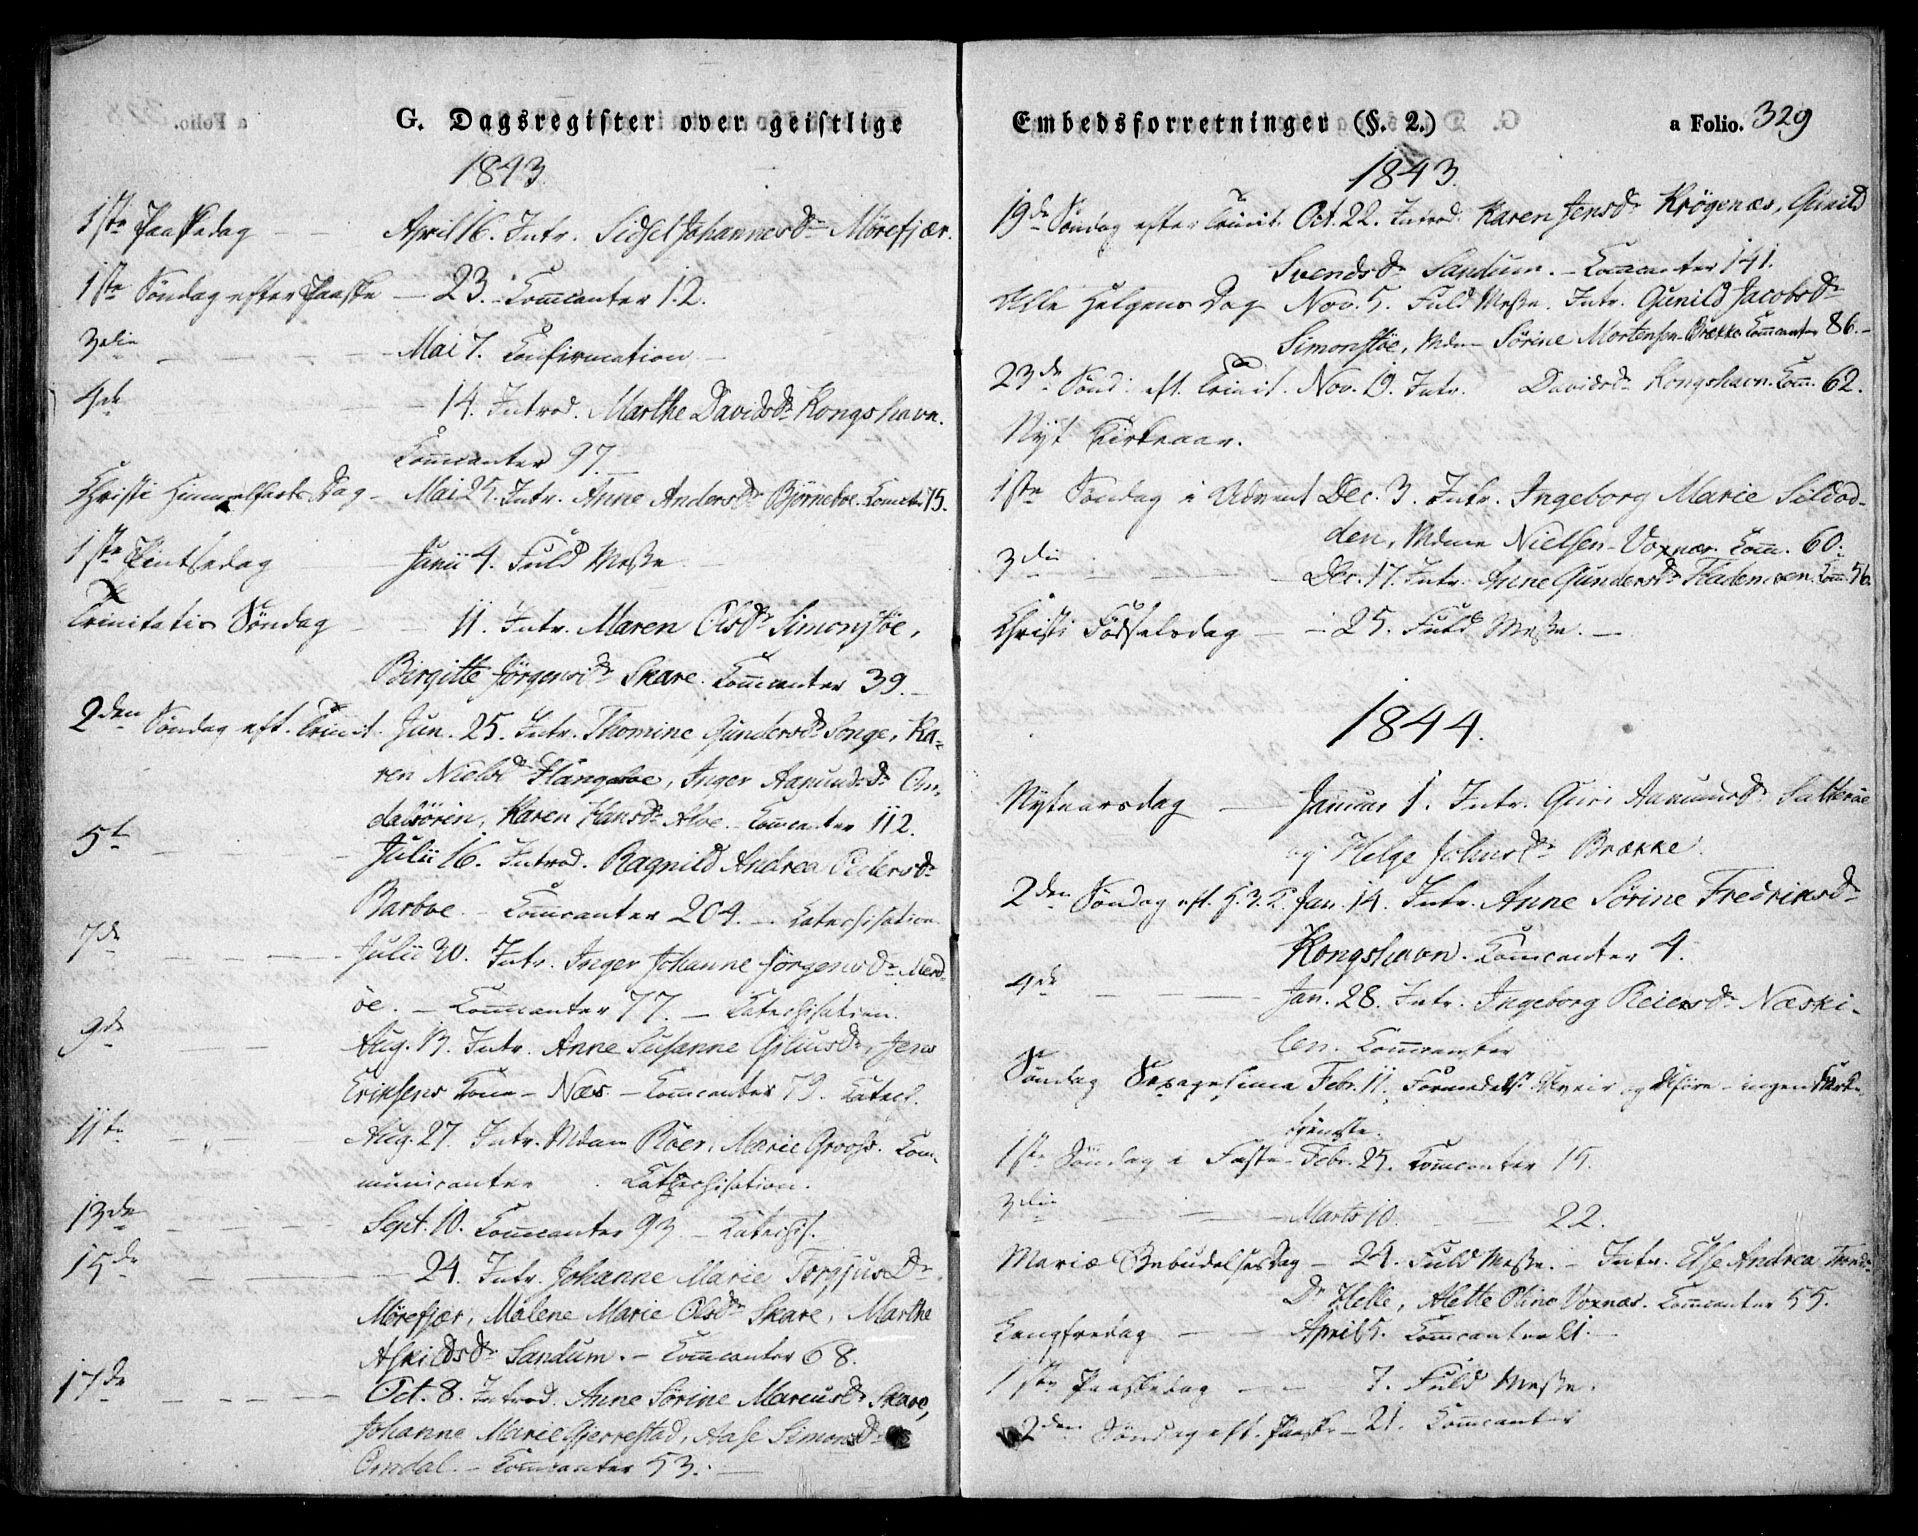 G. Dagsregister over geistlige
1843.
1ste Paaskedag - - April 16. Intr. Sidsel Johannesdr Mørefjær.
1ste Søndag efter Paaske - 23. Com̅canter 12.
3die - - - Mai 7. Confirmation -
4de - 14. Introd. Marthe Davidsdr Kongshavn.
Com̅canter 97. -
Christi Himmelfarts Dag - Mai 25. Intr. Anne Andersdr Bjørneboe. Com̅cter 75.
1ste Pintsedag - Junii 4. Fuld Messe -
Trinitatis Søndag - - 11. Intr. Maren Olsdr Simonstøe,
Birgitte Jørgensdr Skare. Com̅canter 39. -
2den Søndag eft. Trinit. Jun. 25. Intr. Thomine Gundersdr Songe, Ka-
ren Nielsdr Flangeboe, Inger Aamundsdr Om-
dalsøren, Karen Hansdr Alve. - Com̅canter 112.
5te - - - Julii 16. Introd. Ragnild Andrea Pedersdr
Barboe. - Com̅canter 204. - Catechisation.
7de - - - Julii 30. Intr. Inger Johanne Jørgensdr Merd-
øe. - Com̅canter 77. - Catechisation.
9de - - Aug. 13. Intr. Anne Susanne Giliusdr, Jens
Eriksens Kone - Næs. - Com̅canter 79. Catech.
11te - - - Aug. 27. Intr. Mdm Røer, Marie Grooss. Com-
municanter . Catechisation.
13de - - - Sept. 10. Com̅canter 93 - Catechis.
15de - - - 24. Intr. Johanne Marie Torgjusdr
Mørefjær, Malene Marie Olsdr Skare, Marthe
Askildsdr Sandum. - Com̅canter 68.
17de - - - Oct. 8. Introd. Anne Sørine Marcusdr Skare,
Johanne Marie Gjerrestad, Aase Simonsdr
Omdal. - Com̅canter 53. -
Embedsforretninger (§. 2.)
a Folio. 329
1843.
19de Søndag efter Trinit. Oct. 22. Introd. Karen Jensdr Krøgenæs, Gunild
Svendsdr Sandum. - Com̅canter 141.
Alle Helgens Dag Nov. 5. Fuld Messe. Intr. Gunild Jacobsdr
Simonstøe, Mdm Sørine Mortensen Brække Com̅canter 86. -
23de Sønd: eft. Trinit. Nov. 19. Intr. Davidsdr Kongshavn. Com̅. 62.
Nyt Kirkeaar.
1ste Søndag i Advent Dec. 3. Intr. Ingeborg Marie Sildod-
den, Mdme Nielsen - Voxnæs. Com̅. 60.
3die - - - Dec. 17. Intr. Anne Gundersdr Com̅. 56.
Christi Fødselsdag - - 25. Fuld Messe. -
1844.
Nytaarsdag - Januar 1. Intr. Guri Aamundsdr
og Helge Johnsdr Brække.
2den Søndag eft. H. 3. K. Jan. 14. Intr. Anne Sørine Fredriksdr
Kongshavn. Com̅canter 4.
4de - - - Jan. 28. Intr. Ingeborg Reiersdr Næski-
len. Com̅canter
Søndag Sexagesima Febr. 11. Formedelst og - ingen Kirke-
tjeneste.
1ste Søndag i Faste - Febr. 25. Com̅canter 15.
3die - - - Marts 10. - 22.
Mariæ Bebudelses Dag - 24. Fuld Messe. - Intr. Else Andrea
Dr Helle, Alette Oline Voxnæs. Com̅canter 55.
Langfredag - - April 5. Com̅canter 21. -
1ste Paaskedag - - 7. Fuld Messe.
2den Søndag eft. Paaske - 21. Com̅canter